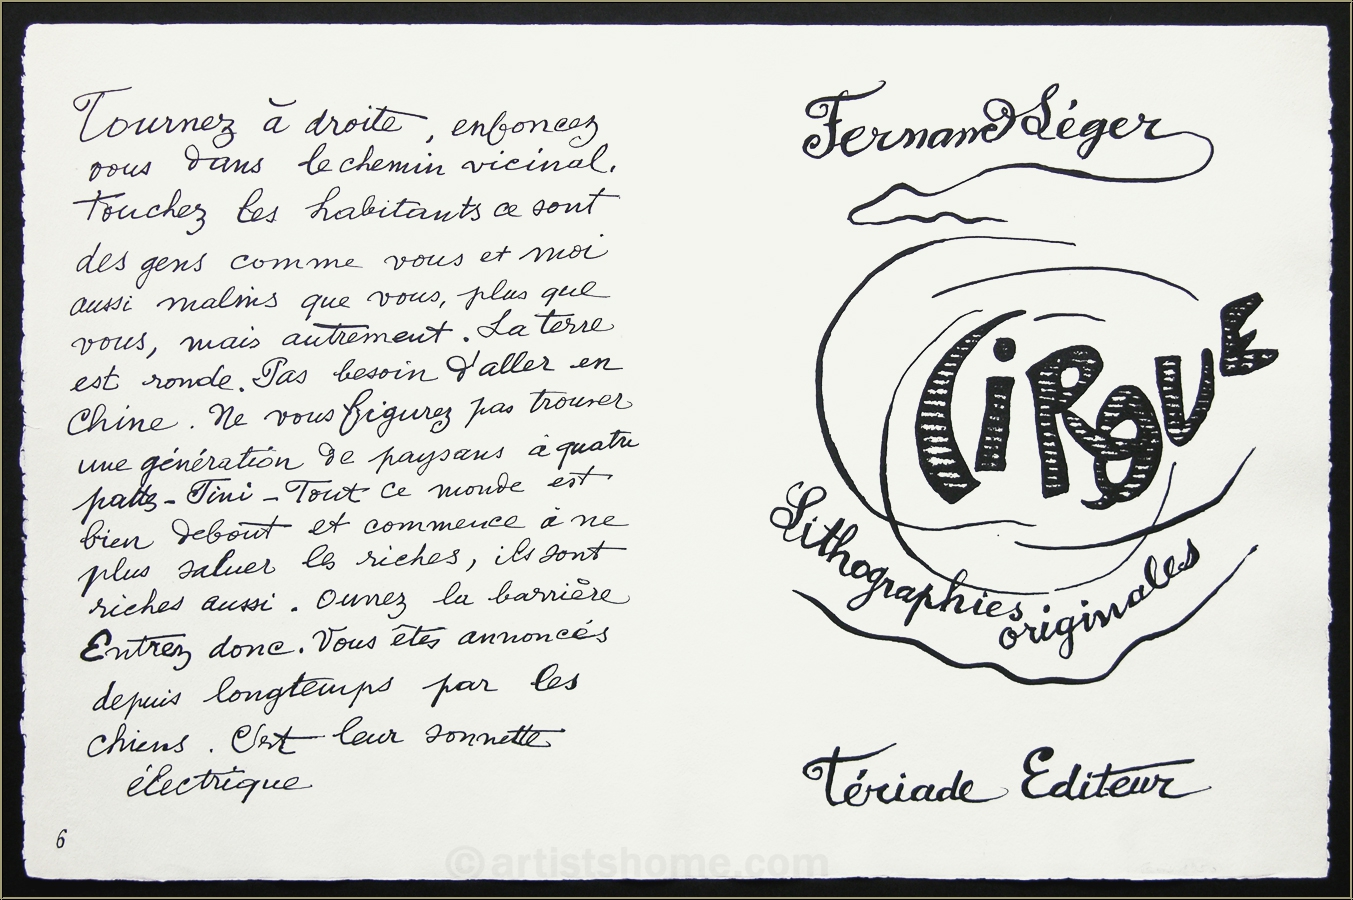 Tournez à droite, enfoncez
vous dans le chemin vicinal.
Touchez les habitants ce sont
des gens comme vous et moi
aussi malins que vous, plus que
vous, mais autrement. La terre
est ronde. Pas besoin d'aller en
Chine. Ne vous figurez pas trouver
une génération de paysans à quatre
pattes - Fini - Tout ce monde est
bien debout et commence à ne
plus saluer les riches, ils sont
riches aussi. Ouvrez la barrière
Entrez donc. Vous êtes annoncés
depuis longtemps par les
chiens. C'est leur sonnette
électrique
6
Fernand Léger
CiRQUE
Lithographies originales
Tériade Editeur
©artistshome.com